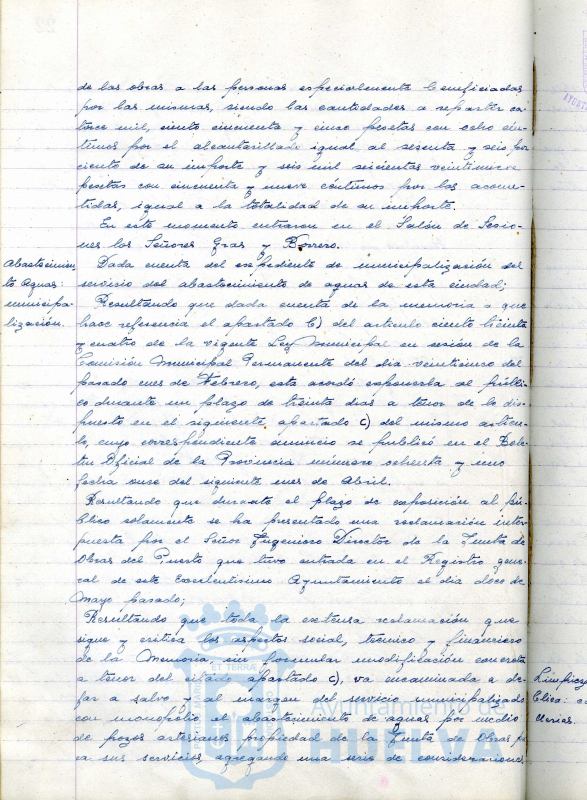 de las obras a las personas especialmente beneficiadas
por las mismas, siendo las cantidades a repartir ca-
torce mil, ciento cincuenta y cinco pesetas con ocho cén-
timos por el alcantarillado igual al sesenta y seis por
ciento de su importe y seis mil seiscientas veintinueve
pesetas con cincuenta y nueve céntimos por las acome-
tidas, igual a la totalidad de su importe.
En este momento entraron en el Salón de Sesio-
nes los Señores Gras y Borrero.
Abastecimien-
to Aguas:
municipa-
lización.
Dada cuenta del expediente de municipalización del
servicio del abastecimiento de aguas de esta ciudad;
Resultando que dada cuenta de la memoria a que
hace referencia el apartado b) del artículo ciento treinta
y cuatro de la vigente Ley Municipal en sesión de la
Comisión Municipal Permanente del dia veinticinco del
pasado mes de Febrero, esta acordó exponerla al públi-
co durante un plazo de treinta dias a tenor de lo dis-
puesto en el siguiente apartado c) del mismo artícu-
lo, cuyo correspondiente anuncio se publicó en el Bole-
tin Oficial de la Provincia número ochenta y uno
fecha once del siguiente mes de Abril.
Resultando que durante el plazo de exposición al pú-
blico solamente se ha presentado una reclamación inter-
puesta por el Señor Ingeniero Director de la Junta de
Obras del Puerto que tuvo entrada en el Registro gene-
ral de este Excelentísimo Ayuntamiento el dia doce de
Mayo pasado;
Resultando que toda la extensa reclamación que
sigue y critica los aspectos social, técnico y financiero
de la Memoria, sin formular modificación concreta
a tenor del citado apartado c), va encaminada a de-
jar a salvo y al margen del servicio municipalizado
con monopolio el abastecimiento de aguas por medio
de pozos artesianos propiedad de la Junta de Obras
a sus servicios, agregando una serie de consideraciones
Ayuntamiento de
HUELVA